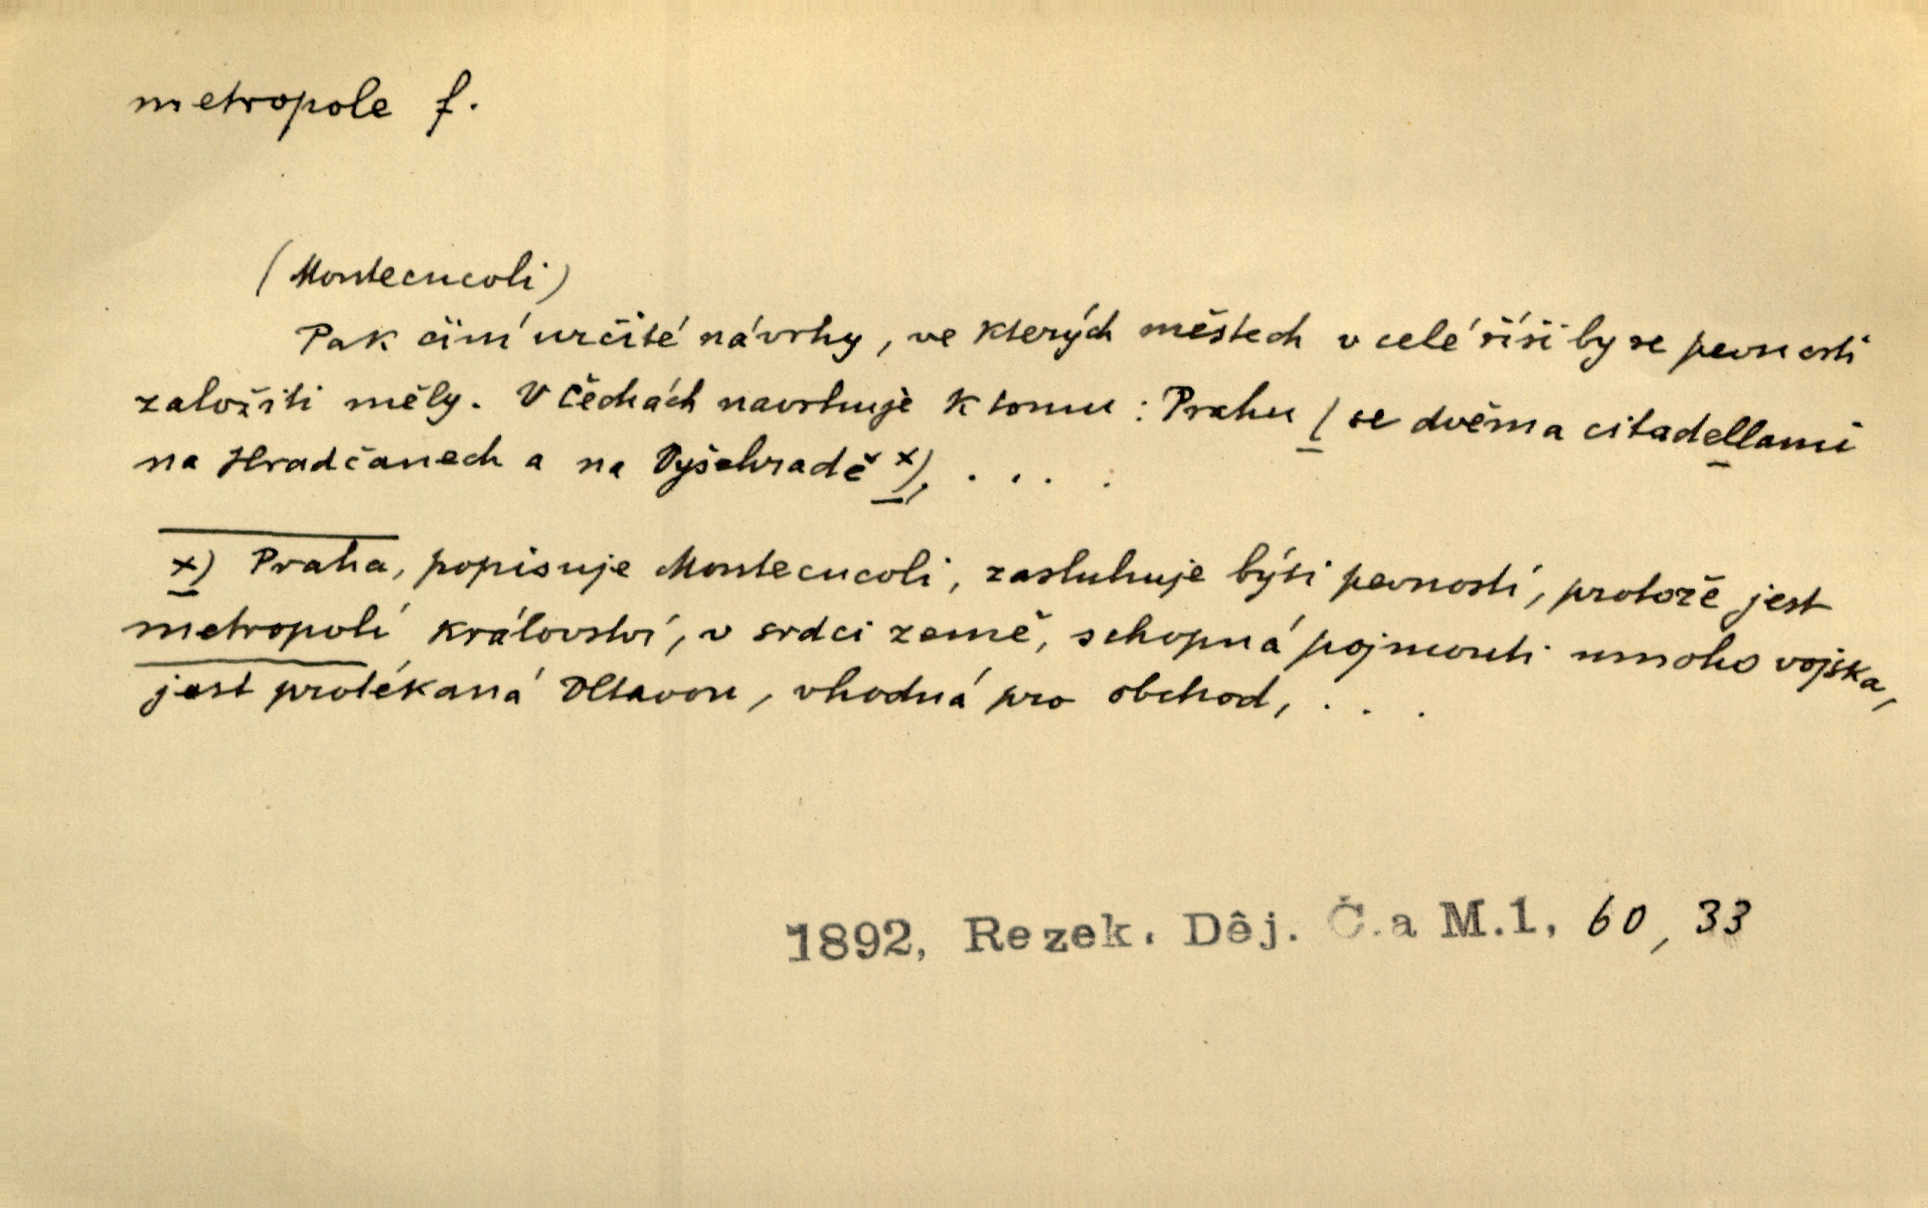 metropole f.
(Montecucoli)
Pak činí určité návrhy, ve kterých městech v celé říši by se pevnosti
založiti měly. V Čechách navrhuje k tomu: Prahu ( se dvěma citadellami
na Hradčanech a na Vyšehradě x), . . . .
x) Praha, popisuje Montecucoli, zasluhuje býti pevností, protože jest
metropolí království, v srdci země, schopná pojmouti mnoho vojska,
jest protékaná Vltavou, vhodná pro obchod, . . .
1892, Rezek. Děj. Č. a M. 1, 60, 33